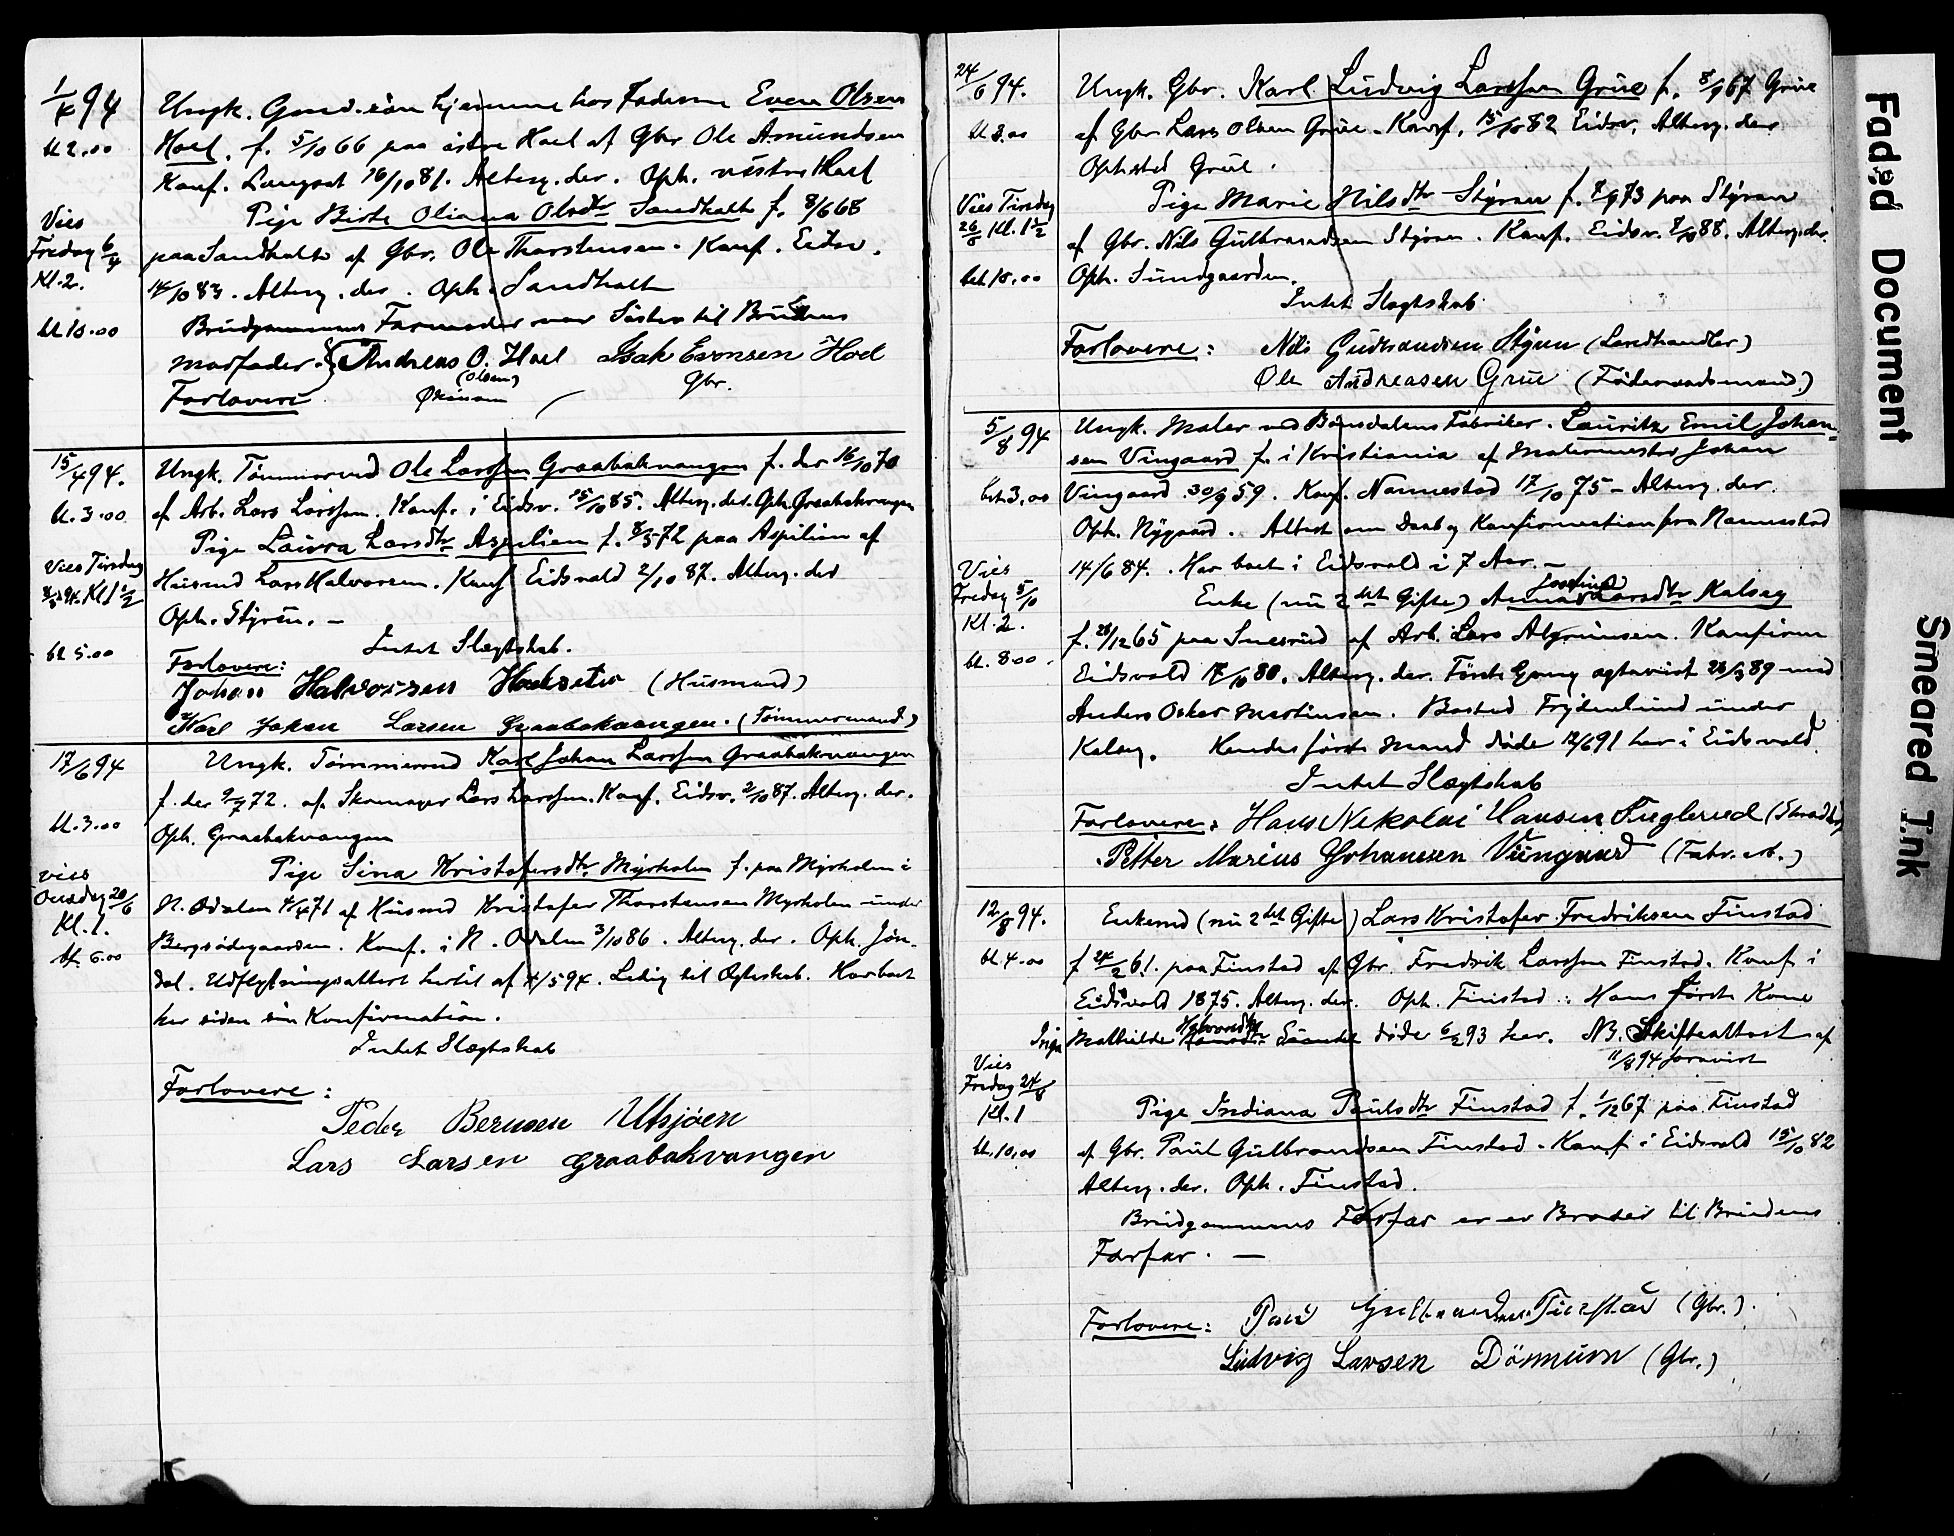 1/4 94
bt 2.00
Vies
Fredag 6/4
Kl. 2.
bt 10.00
Ungk. Gmd.søn hjemme hos Faderen Even Olsen
Hoel. f. 5/10 66 paa østre Hoel af Gbr Ole Amundsen
Konf. Langset 16/10 81. Alterg. der. Oph. vestre Hoel
Pige Birte Oliana Olsdtr Sandholt f. 8/6 68
paa Sandholt af Gbr. Ole Thorstensen. Konf. Eidsv.
14/10 83. Alterg. der. Oph. Sandholt
Brudgommens Farmoder var Søster til Brudens
morfader. Andreas O. Hoel Isak Evensen Hoel
(Olsen) Gbr.
Forlovere
15/4 94.
bt. 3.00
Vies Tirsdag
8/5 94 Kl 1 1/2
bt 5.00
Ungk. Tømmermd Ole Larssen Graabakvangen f. der 16/10 70
af Arb. Lars Larssen. Konf. i Eidsv. 15/10 85. Alterg. der. Oph. Graabakvangen
Pige Laura Larsdtr Aspelien f. 8/5 72 paa Aspelien af
Husmd Lars Halvorsen. Konf Eidsvold 2/10 87. Alterg. der
Oph. Styren. —
Intet Slægtskab.
Forlovere:
Johan Halvorsen Hokseter (Husmand)
Karl Johan Larsen Graabakvangen. (Tømmermand)
17/6 94
bt. 3.00
Vies
Onsdag 20/6
Kl. 1.
bt. 6.00
Ungk. Tømmermd Karl Johan Larssen Graabakvangen
f. der 9/7 72. af Skomager Lars Larssen. Konf. Eidsv. 2/10 87. Alterg. der.
Oph. Graabakvangen
Pige Sina Kristofersdtr Myrholen f. paa Myrholen i
N. Odalen 4/4 71 af Husmd Kristofer Thorstensen Myrholen under
Bergsødegaarden. Konf. i N. Odalen 3/10 86. Alterg. der. Oph. Jøn-
dal. Udflytningsattest hertil af 4/5 94. Ledig til Ægteskab. Har boet
her siden sin Konfirmation.
Intet Slægtskab
Forlovere:
Peder Bernsen Utsjøen
Lars Larsen Graabakvangen
24/6 94.
bt 3.00
Vies Tirsdag
26/6 Kl. 1 1/2
bet 10.00
Ungk. Gbr. Karl Ludvig Larssen Grue f. 8/9 67 Grue
af Gbr Lars Olsen Grue. Konf. 15/10 82 Eidsv. Alterg. der
Opholsted Grue.
Pige Marie Nilsdtr Styren f. 7/9 73 paa Styren
af Gbr. Nils Gulbrandsen Styren. Konf. Eidsv. 7/10 88. Alterg. der.
Oph. Sundgaarden.
Intet Slægtskab.
Forlovere: Nils Gudbrandsen Styren (Landhandler)
Ole Andreasen Grue (Føderaadsmand.)
5/8 94
bet. 3.00
Vies
Fredag 5/10
Kl. 2.
bt. 8.00.
Ungk. Maler ved Bønsdalens Fabriker. Lauritz Emil Johan-
sen Vingaard f. i Kristiania af Malermester Johan
Vingaard 30/9 59. Konf. Nannestad 17/10 75 – Alterg. der.
Oph. Nygaard. Attest om Daab og Konfirmation fra Nannestad
14/6 84. Har boet i Eidsvold i 7 Aar. —
Enke (nu 2det Gifte) Anna Josefine Larsdtr Kalseg
f. 28/12 65 paa Smesrud af Arb. Lars Algrimsen. Konfirm
Eidsvold 17/10 80. Alterg. der. Første Gang ægteviet 23/3 89 med
Anders Oskar Martinsen. Bosted Frydenlund under
Kalseg. Hendes første Mand døde 12/6 91 her i Eidsvold.
Intet Slægtskab
Forlovere: Hans Nekolai Hansen Fuglerud
Petter Marius Johansen Viingaard (Fabr. arb.)
12/8 94.
bt. 4.00
Vies
Fredag 24/8
Kl. 1
bt. 10.00
Enkemd (nu 2det Gifte) Lars Kristofer Fredriksen Finstad
f 24/2 61. paa Finstad af Gbr. Fredrik Larssen Finstad. Konf i
Eidsvold 1875. Alterg. der. Oph. Finstad. Hans første Kone
Inga Mathilde Halvorsdtr døde 6/2 93 her. NB. Skifteattest af
11/8 94 forevist
Pige Indiana Paulsdtr Finstad f. 1/12 67 paa Finstad
af Gbr. Paul Gulbrandsen Finstad. Konf i Eidsvold 15/10 82
Alterg. der. Oph. Finstad.
Brudgommens Farfar er en Broder til Brudens
Farfar. —
Forlovere: Paul Gulbrandsen Finstad (Gbr.).
Ludvig Larsen Dønnum (Gbr.)
Faded Document
Smeared Ink